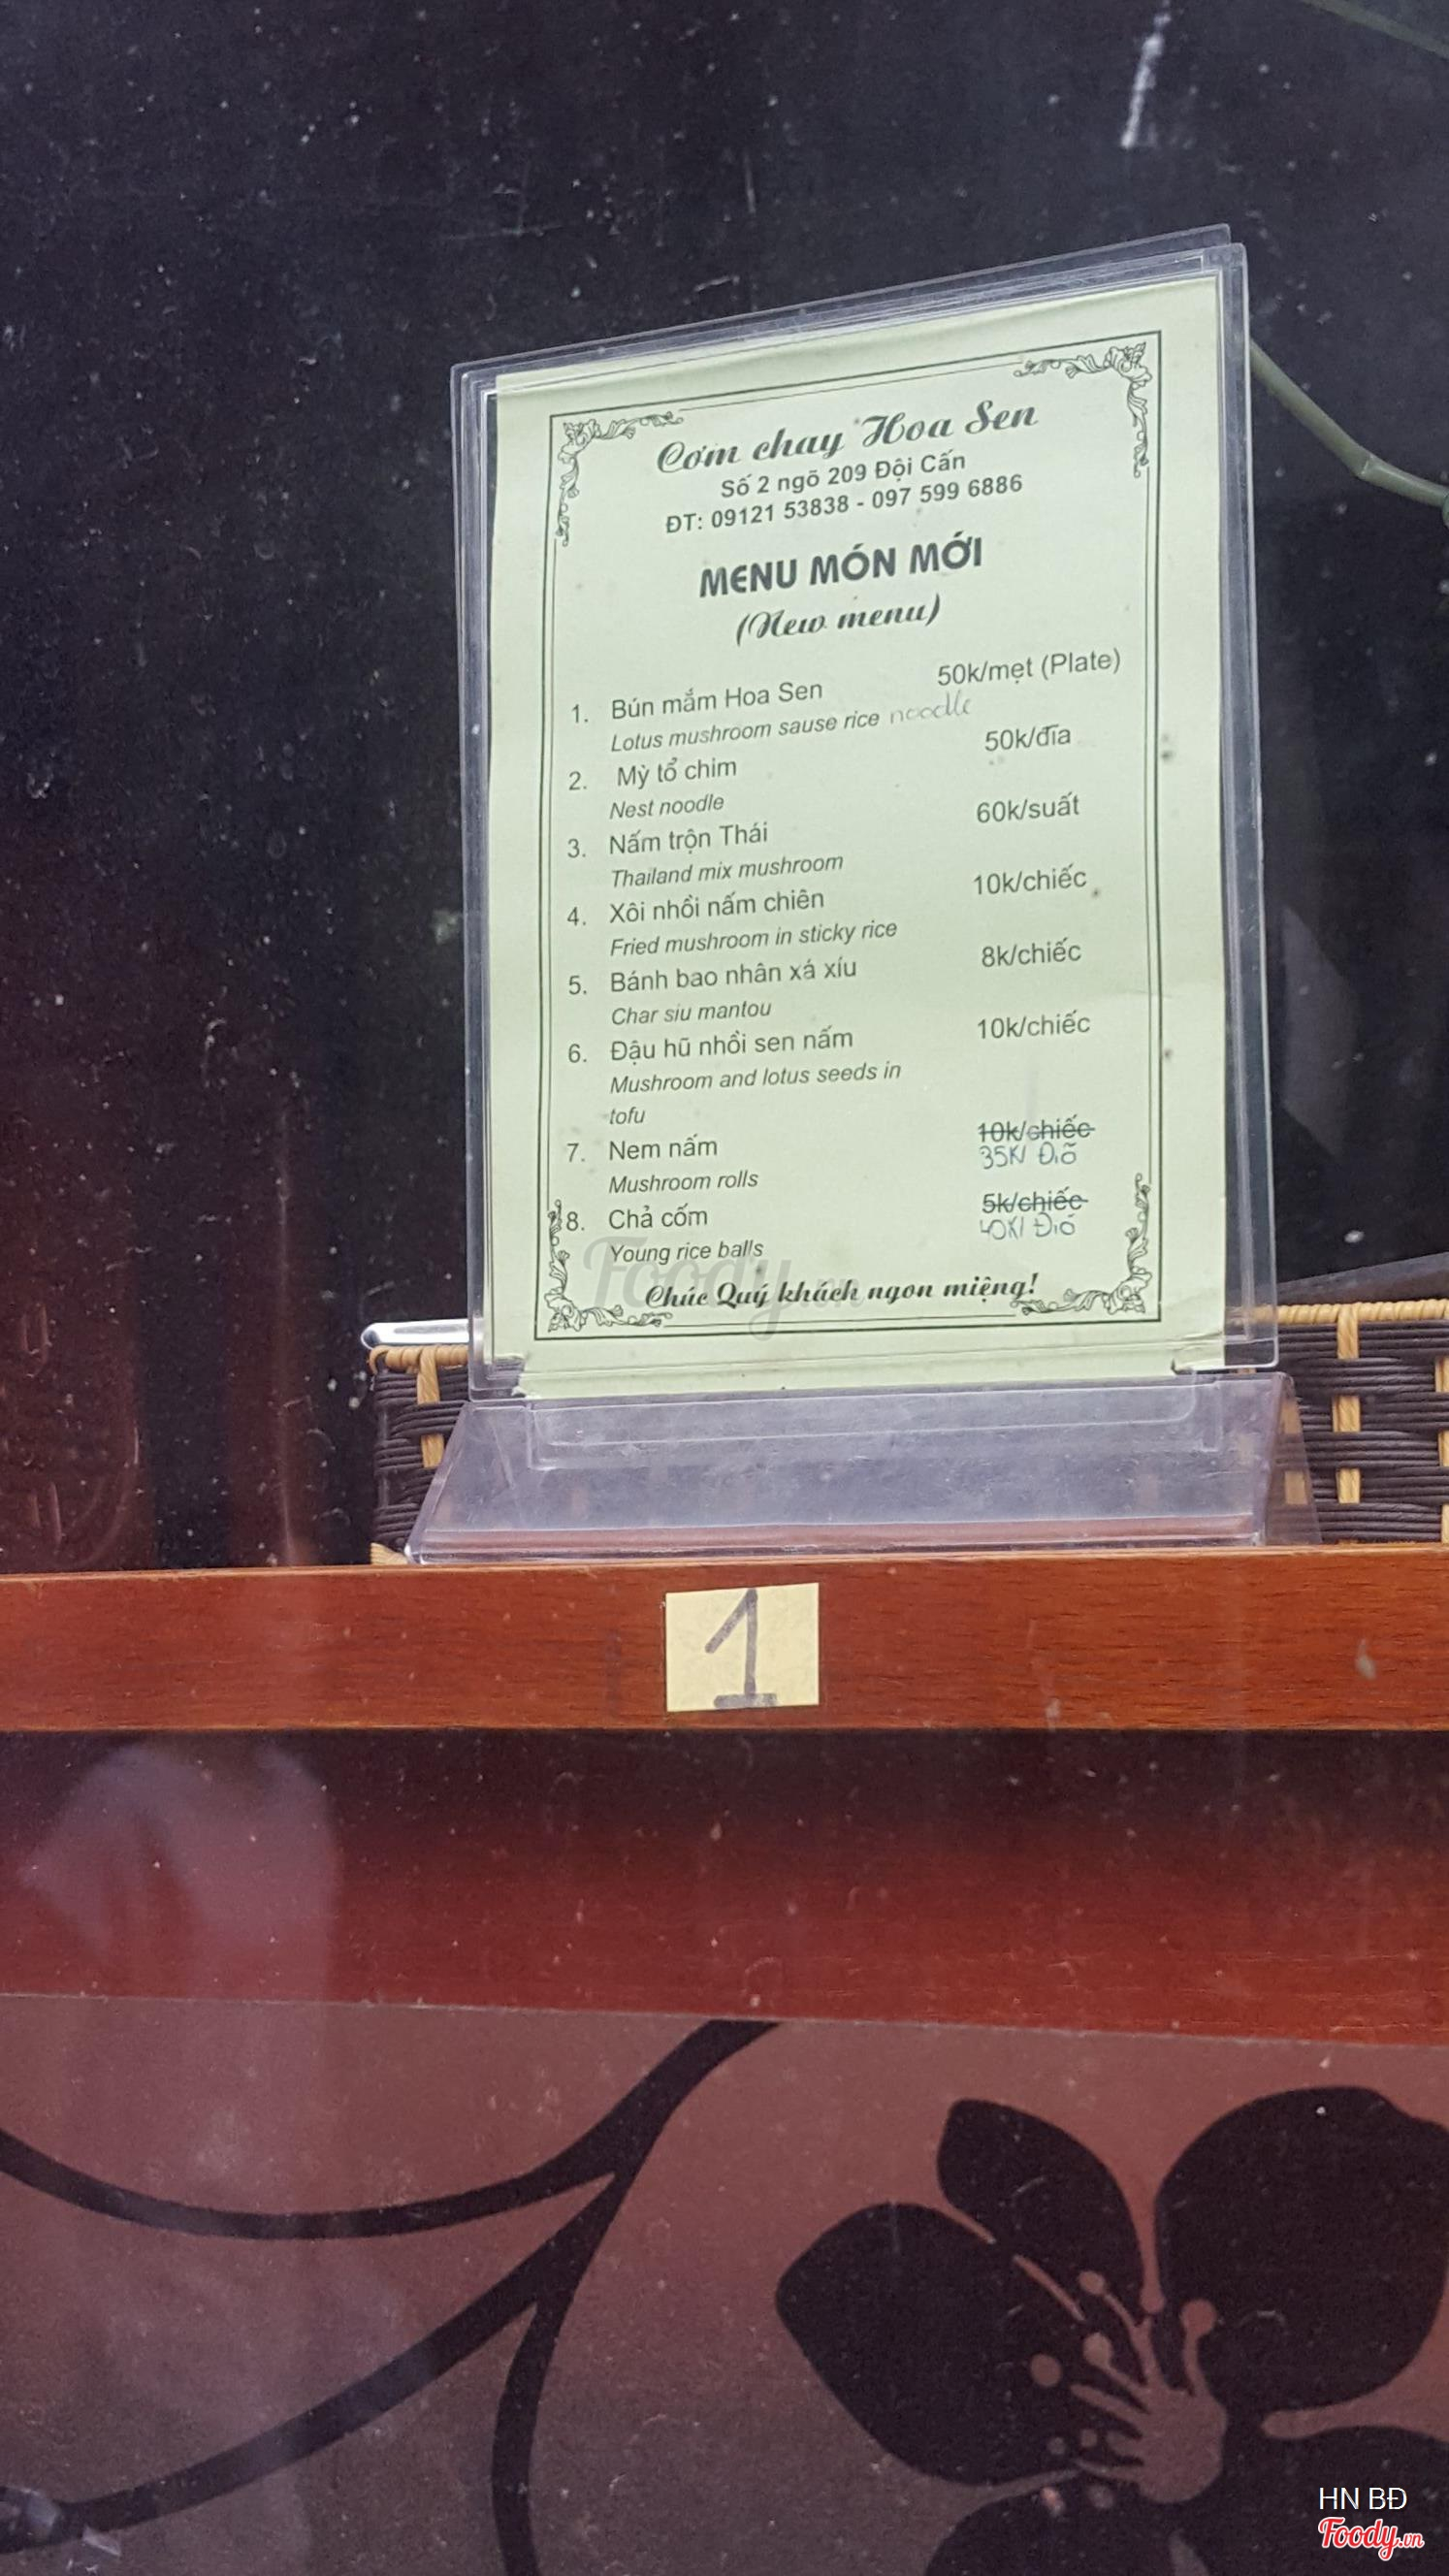 Cơm chay Hoa Sen
Số 2 ngõ 209 Đội Cấn
ĐT: 09121 53838 - 097 599 6886
MENU MÓN MỚI
(New menu)
1. Bún mắm Hoa Sen 50k/mẹt (Plate)
Lotus mushroom sause rice noodle
2. Mỳ tổ chim 50k/đĩa
Nest noodle
3. Nấm trộn Thái 60k/suất
Thailand mix mushroom
4. Xôi nhồi nấm chiên 10k/chiếc
Fried mushroom in sticky rice
5. Bánh bao nhân xá xíu 8k/chiếc
Char siu mantou
6. Đậu hũ nhồi sen nấm 10k/chiếc
Mushroom and lotus seeds in
tofu
7. Nem nấm 10k/chiếc
35K/ Đĩa
Mushroom rolls
8. Chả cốm 5k/chiếc
40K/ Đĩa
Young rice balls
Foody.vn
Chúc Quý khách ngon miệng!
1
HN BĐ
Foody.vn